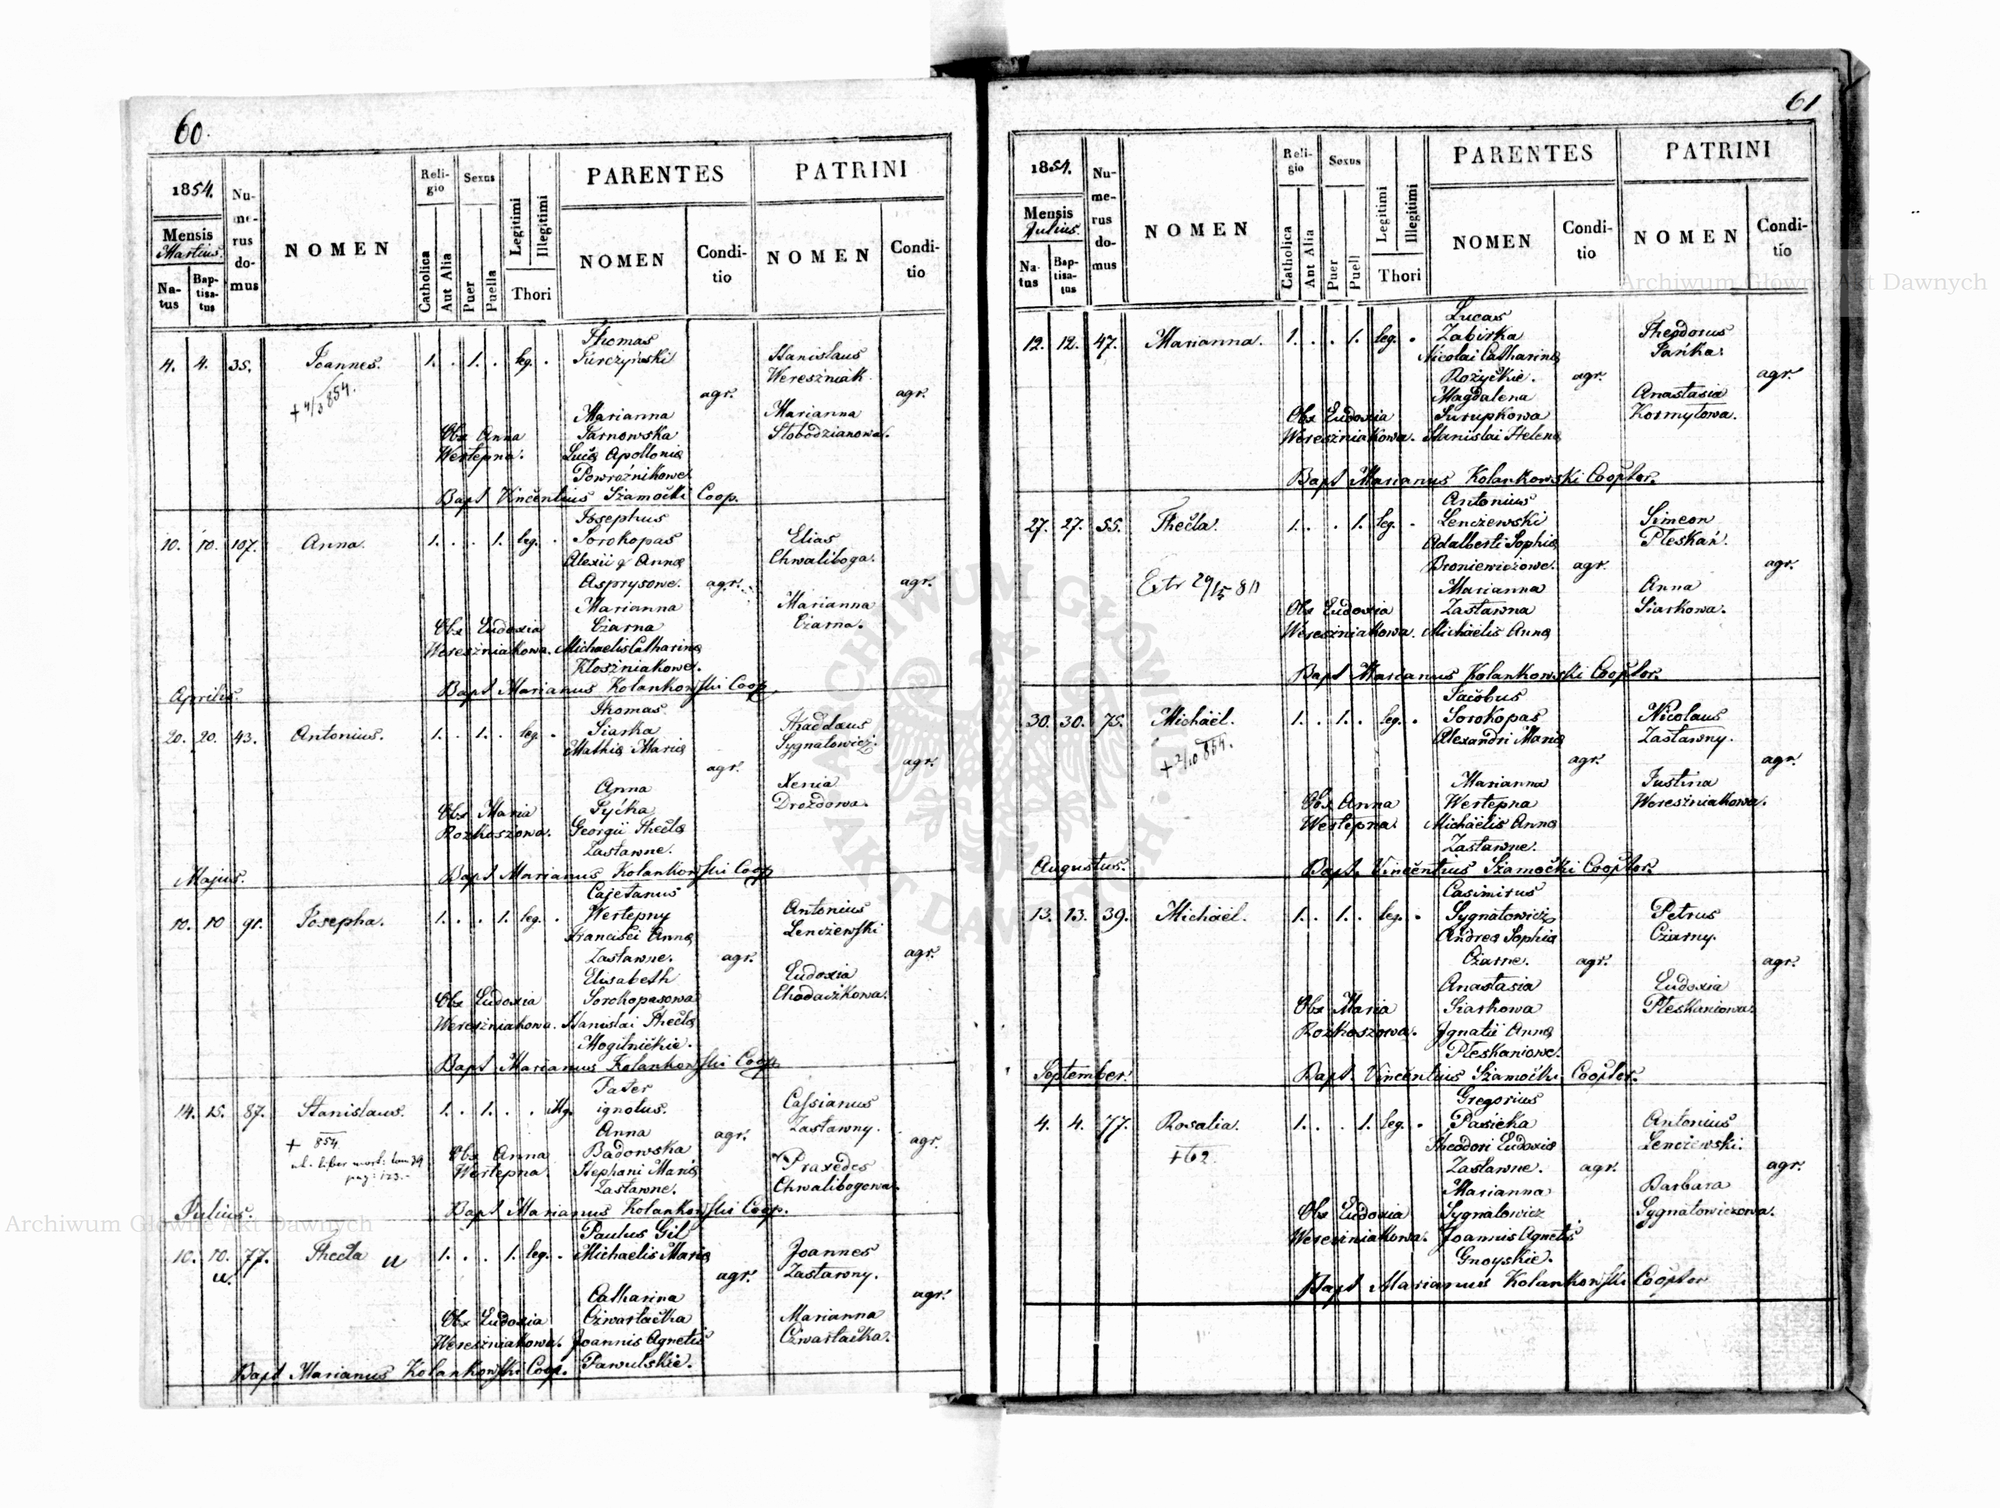 60.
1854.
Numerus domus
NOMEN
Religio
Sexus
Legitimi
Illegitimi
PARENTES
PATRINI
Mensis
Martius.
Natus
Baptisatus
Catholica
Aut Alia
Puer
Puella
Thori
NOMEN
Conditio
NOMEN
Conditio
Thomas
4. 4. 35. Joannes. 1. . 1. . leg. . Turczyński Stanislaus
Wereszniak.
+ 4/3 854. agr. agr.
Marianna Marianna
Obx Anna Tarnowska Słobodzianowa.
Wertepna. Lucæ Apollonia
Powroźnikowe.
Bapt Vincentius Szamocki Coop.
Josephus
10. 10. 107. Anna. 1. . . 1. leg. . Sorokopas Elias
Alexii & Annæ Chwaliboga.
Asprysowe. agr. agr.
Marianna Marianna
Obx Eudoxia Czarna Czarna.
Wereszniakowa. Michaelis Catharinæ
Kłoszniakowe.
Aprilis. Bapt Marianus Kolankowski Coop.
Thomas
20. 20. 43. Antonius. 1. . 1. . leg. . Siarka Thaddæus
Mathiæ Mariæ Sygnatowicz.
agr. agr.
Anna Xenia
Obx Maria Pyćka Drozdowa.
Rozkoszowa. Georgii Theclæ
Zastawne.
Majus. Bapt Marianus Kolankowski Coop
Cajetanus
10. 10 91. Josepha. 1. . . 1. leg. . Wertepny Antonius
Francisci Annæ Lenczewski
Zastawne. agr. agr.
Elisabeth Eudoxia
Obx Eudoxia Sorokopasowa Chodaczkowa.
Wereszniakowa. Stanislai Theclæ
Mogilnickie.
Bapt Marianus Kolankowski Coop
Pater
14. 15. 87. Stanislaus. 1. . 1. . . Illg. ignotus. Cassianus
Anna agr. Zastawny. agr.
+ 854 Obx Anna Badowska
Wertepna Stephani Mariæ Praxedes
Zastawne. Chwalibogowa.
Julius. Bapt Marianus Kolankowski Coop.
Paulus Gil
10. 10. 77. Thecla 1. . . 1. leg. . Michaelis Mariæ Joannes
agr. Zastawny.
Catharina agr.
Obx Eudoxia Czwartacka Marianna
Wereszniakowa. Joannis Agnetis Czwartacka.
Pawulskie.
Bapt Marianus Kolankowski Coop.
61
1854.
Numerus domus
NOMEN
Religio
Sexus
Legitimi
Illegitimi
PARENTES
PATRINI
Mensis
Julius.
Natus
Baptisatus
Catholica
Aut Alia
Puer
Puell
Thori
NOMEN
Conditio
NOMEN
Conditio
Lucas
12. 12. 47. Marianna. 1. . . 1. leg. . Zabirka Theodorus
Nicolai Catharinæ Pańka.
Rożyckie. agr. agr.
Magdalena Anastasia
Obx Eudoxia Turupkowa Kormyłowa.
Wereszniakowa. Stanislai Helenæ
Bapt Marianus Kolankowski Cooptor.
Antonius
27. 27. 55. Thecla. 1. . . 1. leg. . Lenczewski Simeon
Adalberti Sophiæ Pleskań.
Broniewiczowe. agr. agr.
Marianna Anna
Obx Eudoxia Zastawna Siarkowa.
Wereszniakowa. Michaëlis Annæ
Bapt Marianus Kolankowski Cooptor.
Jacobus
30. 30. 75. Michaël. 1. . 1. . leg. . Sorokopas Nicolaus
Alexandri Mariæ Zastawny.
+ 2/10 854. agr. agr.
Marianna Justina
Obx Anna Wertepna Wereszniakowa.
Wertepna. Michaëlis Annæ
Zastawne.
Augustus. Bapt. Vincentius Szamocki Cooptor.
Casimirus
13. 13. 39. Michaël. 1. . 1. . leg. . Sygnatowicz Petrus
Andreæ Sophiæ Czarny.
Czarne. agr. agr.
Anastasia Eudoxia
Obx Maria Siarkowa Pleskaniowa.
Rozkoszowa. Ignatii Annæ
Pleskaniowe.
September. Bapt. Vincentius Szamocki Cooptor.
Gregorius
4. 4. 77. Rosalia. 1. . . 1. leg. . Pasieka Antonius
Theodori Eudoxiæ Lenczewski.
+ 62 Zastawne. agr. agr.
Marianna Barbara
Obx Eudoxia Sygnatowicz Sygnatowiczowa.
Wereszniakowa. Joannis Agnetis
Gnoyskie.
Bapt Marianus Kolankowski Cooptor
ARCHIWUM GŁÓWNE AKT DAWNYCH
Archiwum Główne Akt Dawnych
Archiwum Główne Akt Dawnych